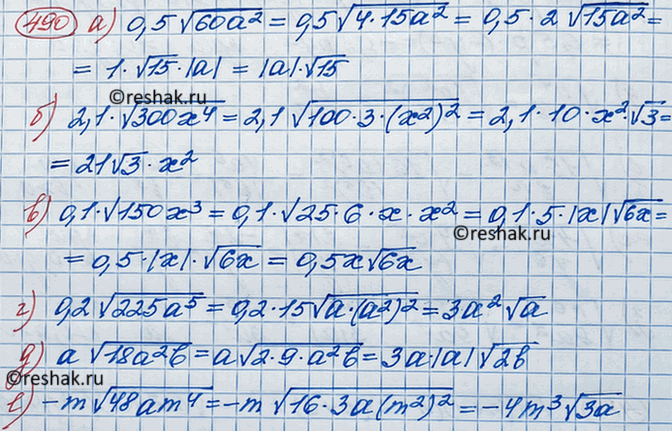 490 а) 0,5√60a² = 0,5√4·15a² = 0,5·2√15a² =
= 1·√15·|a| = |a|√15
©reshak.ru
б) 2,1·√300x⁴ = 2,1√100·3·(x²)² = 2,1·10·x²·√3 =
= 21√3·x²
в) 0,1·√150x³ = 0,1·√25·6·x·x² = 0,1·5·|x|√6x =
©reshak.ru
= 0,5·|x|·√6x = 0,5x√6x
г) 0,2√225a⁵ = 0,2·15√a·(a²)² = 3a²√a
д) a√18a²b = a√2·9·a²b = 3a·|a|√2b
©reshak.ru
е) -m√48am⁴ = -m√16·3a(m²)² = -4m³√3a